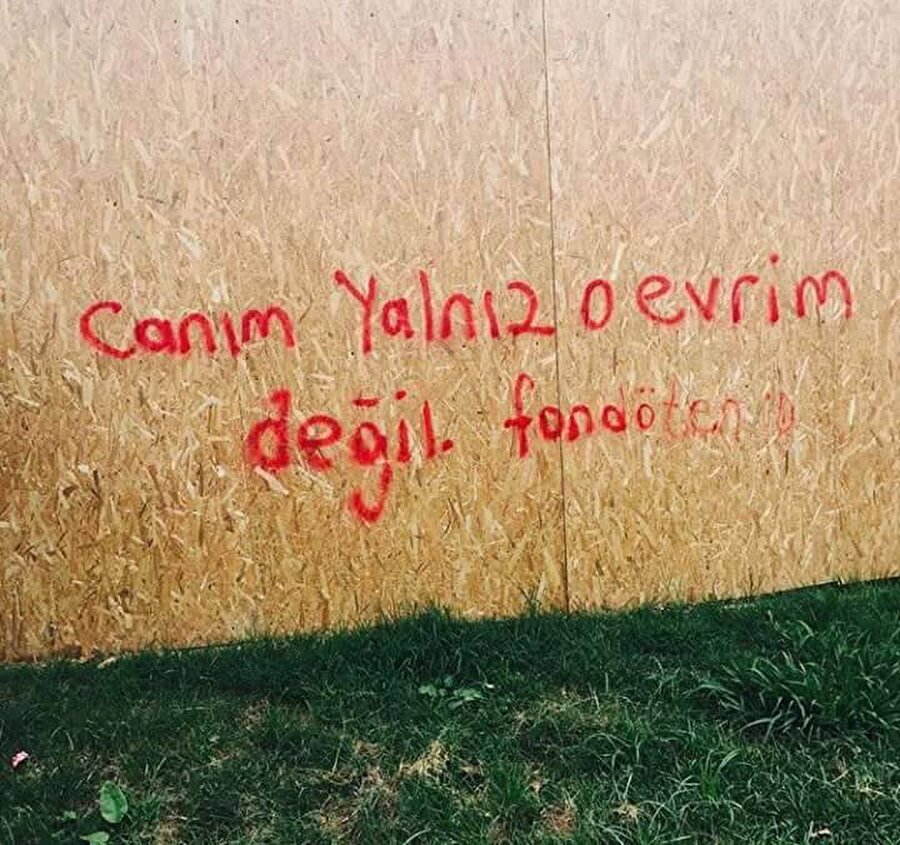 canım Yalnız o evrim
değil. fondöten :p